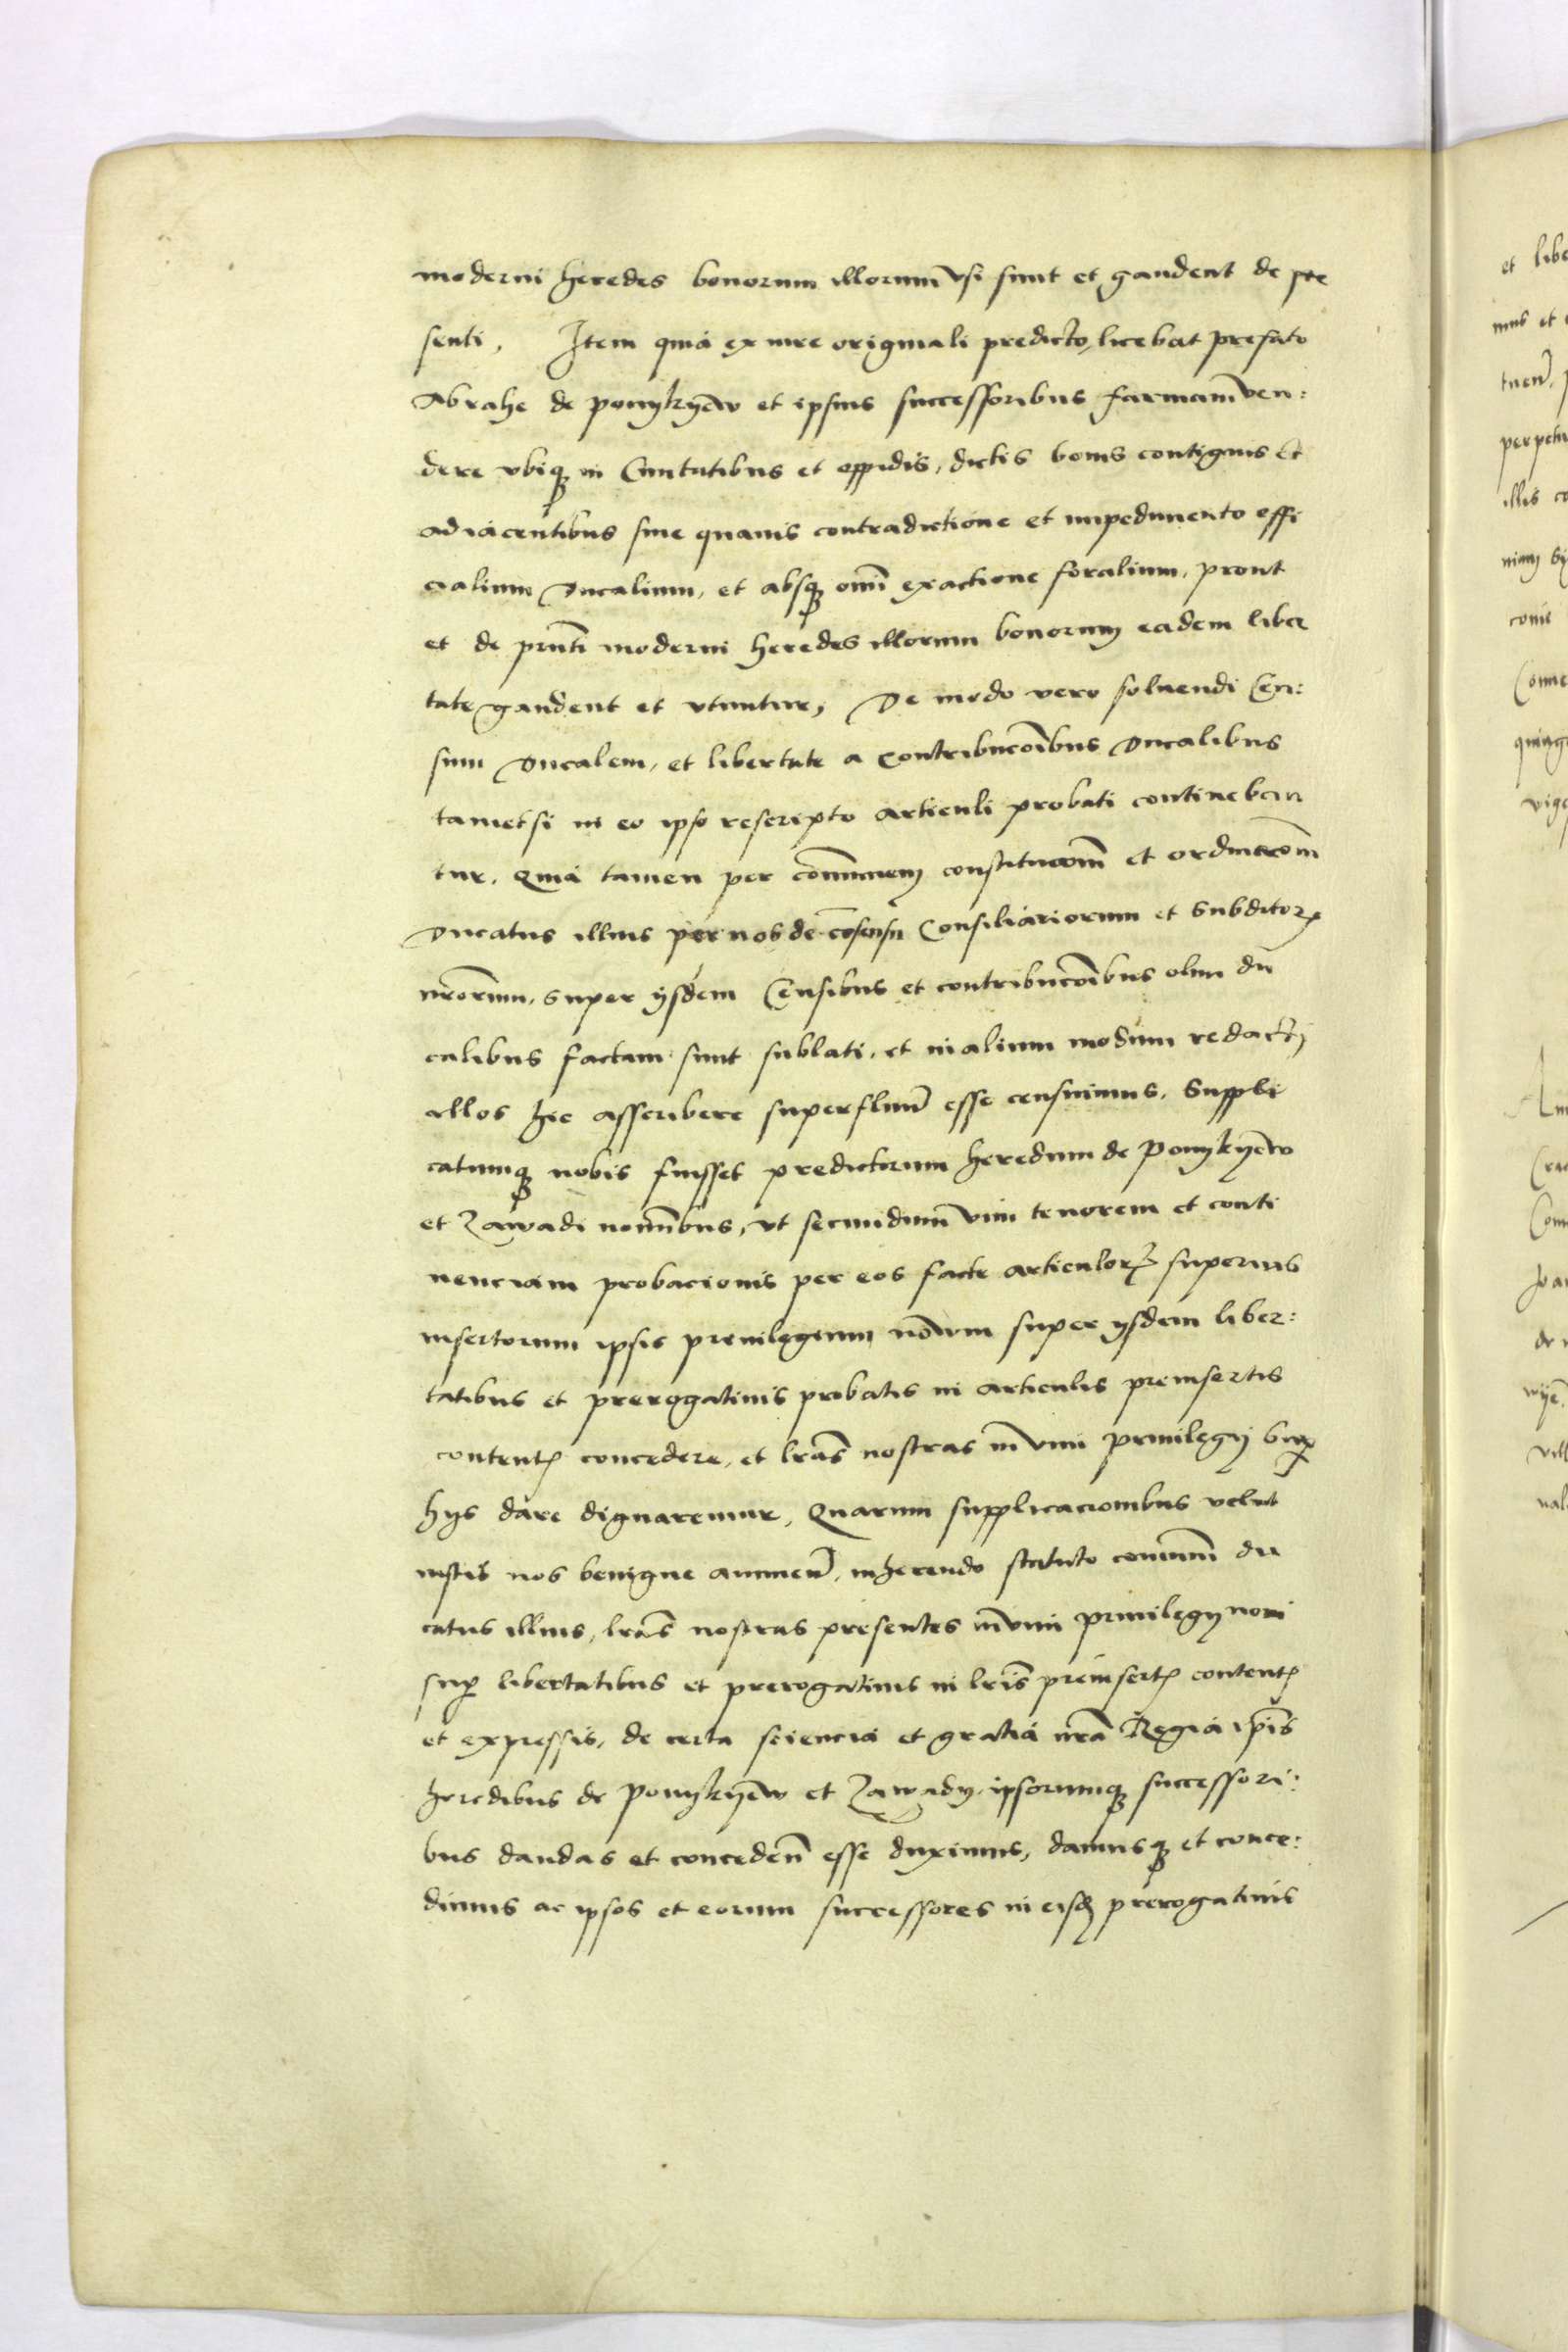 moderni heredes bonorum illorum usi sunt et gaudent de pre
senti, Item quia ex iure originali predicto, licebat prefato
Abrahe de ponykyew et ipsius successoribus farmam ven:
dere ubiqz in Civitatibus et oppidis, dictis bonis contiguis et
adiacentibus sine quavis contradictione et impedimento offi
cialium ducalium, et absqz omi exactione foralium, prout
et de pnti moderni heredes illorum bonorum eadem liber
tate gaudent et utuntur, De modo vero solvendi Cen:
sum ducalem, et libertate a contribucoibus ducalibus
tametsi in eo ipso rescripto articuli probati contineban
tur. Quia tamen per comunem constitucom et ordinacom
ducatus illius per nos de cosensu Consiliariorum et Subditorꝝ
nrorum, super ijsdem Censibus et contribucoibus olim du
calibus factam sunt sublati, et in alium modum redacti
illos hic asscribere superfluu esse censuimus. Suppli
catumqz nobis fuisset predictorum heredum de ponykyew
et Zawadi noibus, ut secundum vim tenorem et conti
nenciam probacionis per eos facte articulorꝝ superius
insertorum ipsis privilegium novum super ijsdem liber:
tatibus et prerogativis probatis in articulis preinsertis
content concedere, et lras nostras in vim privilegij sup
hijs dare dignaremur, Quarum supplicacionibus velut
iustis nos benigne annuen, inherendo statuto comuni du
catus illius, lras nostras presentes in vim privilegij novi
sup libertatibus et prerogativis in lris preinsert content
et expressis, de certa sciencia et gratia nra Regia ipis
heredibus de ponykyew et Zawady ipsorumqz successori:
bus dandas et conceden esse duximus, damusqz et conce:
dimus ac ipsos et eorum successores in eisd prerogativis
et libe
perpetu
illis co
conie
vige